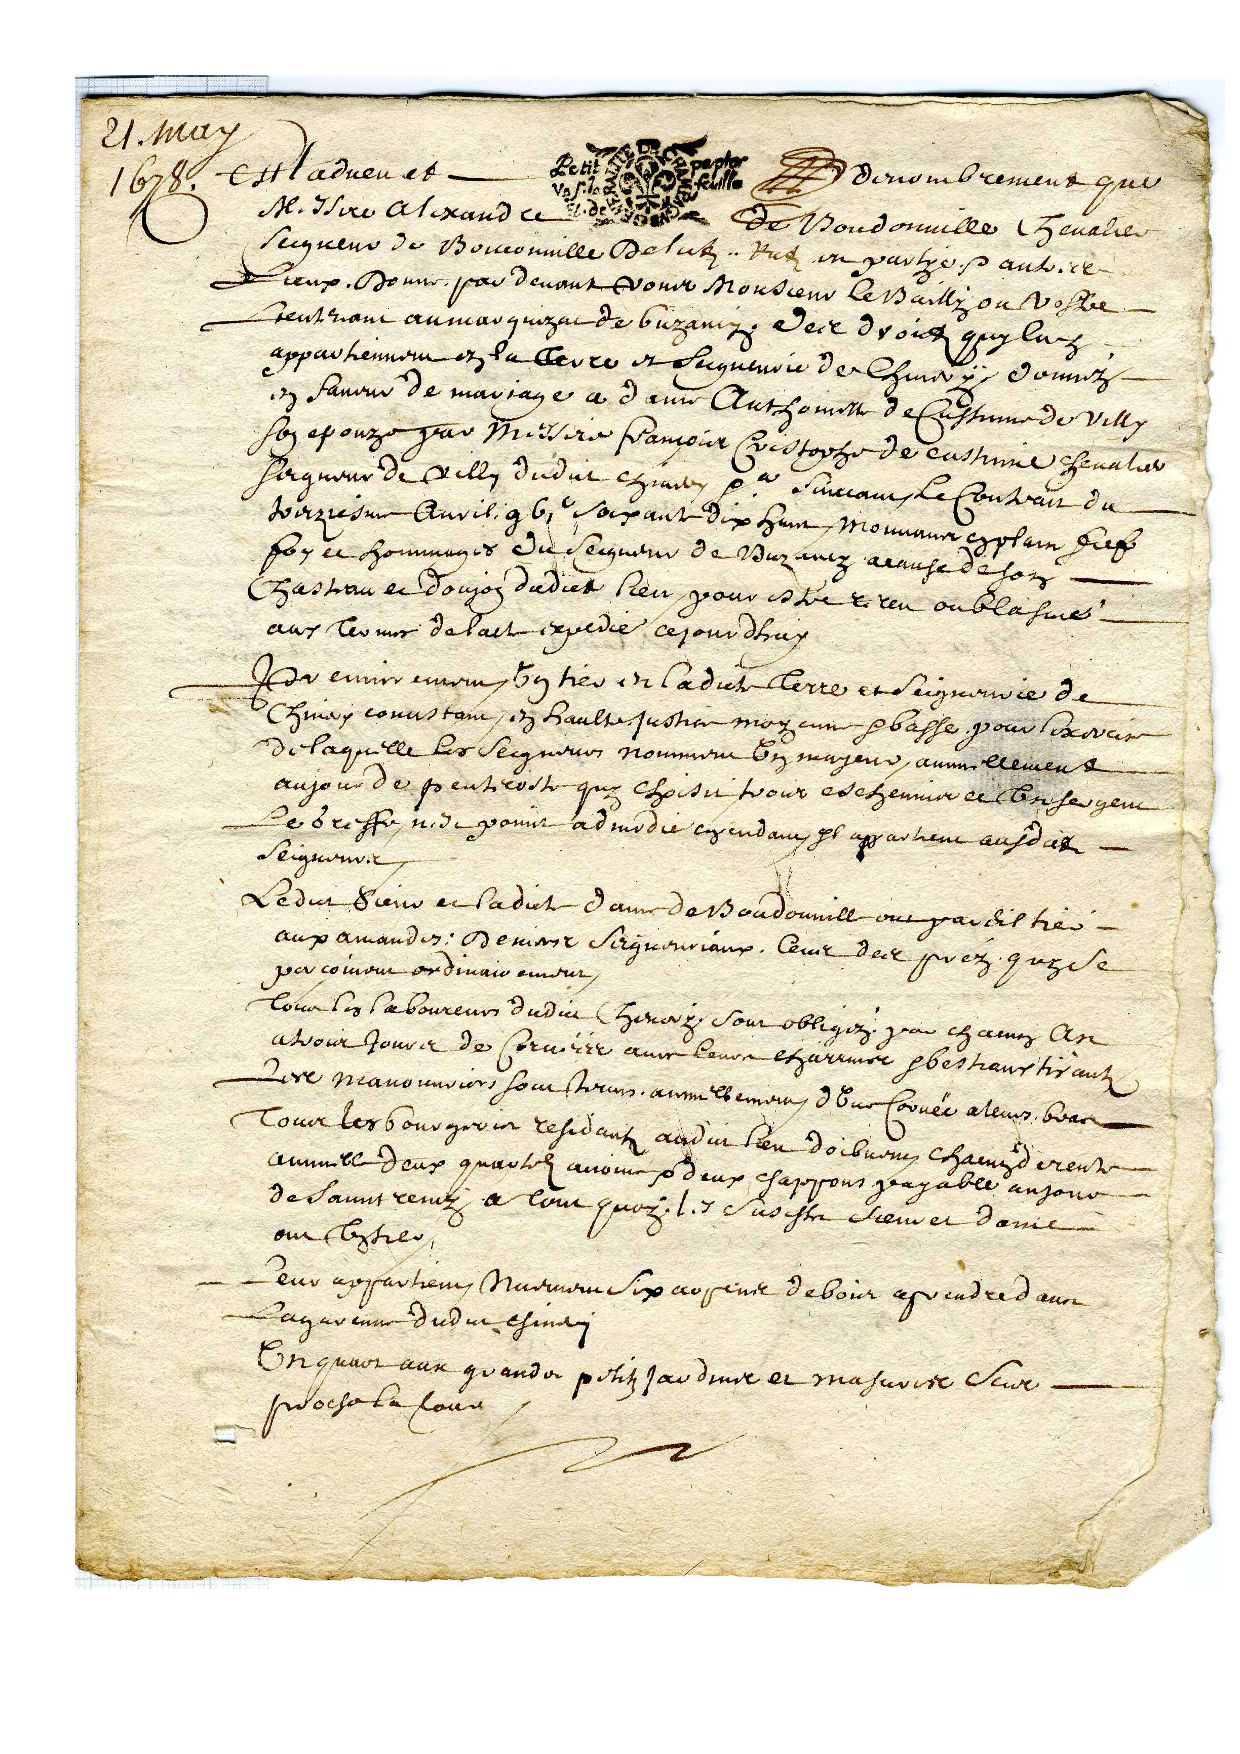 21. may
1678.
Petit papier
GENERALITE DE CHAMPAGNE
feuille
C'est l'adveu et denombrement que
Messire Alexandre de Boudonville Chevalier
Seigneur de Bouconville en partye
Lieux. Donne par devant vous Monsieur le Bailly ou vostre
Lieutenant au marquizat de buzancy. des droicts quy luy
appartiennent en la Terre et Seigneurie de Chinery donnez
en faveur de mariage a dame Anthoinette de Custinne de Villy
son epouze par Messire françois Cristophe de custine chevalier
seigneur de Villy dudit Chinery suivant le Contrait du
treiziesme Avril. soixant dix huit, Mouvant en plain fief
foy et hommages du Seigneur de Buzancy a cause de son
Chasteau et Donjon dudict lieu, pour estre receu ou blasmé
aux termes de l'act expedié cejourdhuy
Premierement, Un tier en ladicte Terre et Seigneurie de
Chinery consistant, en haulte Justice moyenne et basse, pour l'exercice
de laquelle les Seigneurs nomment Un mayeur, annuellement
au jour de pentecoste quy choisit trois eschevins et Un sergent
Le Greffe, n'est point admodié cependant, il appartient ausdits
Seigneurs,
Ledit Sieur et ladicte dame de Boudonville ont pareil tier
aux amandes: Deniers Seigneuriaux. Cens des préz quy se
perçoivent ordinairement,
Tous les laboureurs dudit Chinery sont obligéz par chacun An
a trois jours de Corvéez avec leurs charrues et bestiaux tirants
Les manouvriers sont tenus annuellement, d'Une Corvée a leurs bras
Tous les bourgeois residants audit lieu doibvent, chacun de rente
annuelle deux quartels avoine et deux chappons payable au jour
de Saint remy a tout quoy. les susdits Sieur et dame
ont Un tier,
Leur appartient, Nuement Six arpens de bois a prendre dans
La garenne dudit Chinery
Un quart aux grands et petits Jardins et masures Seis
proche la Cour,